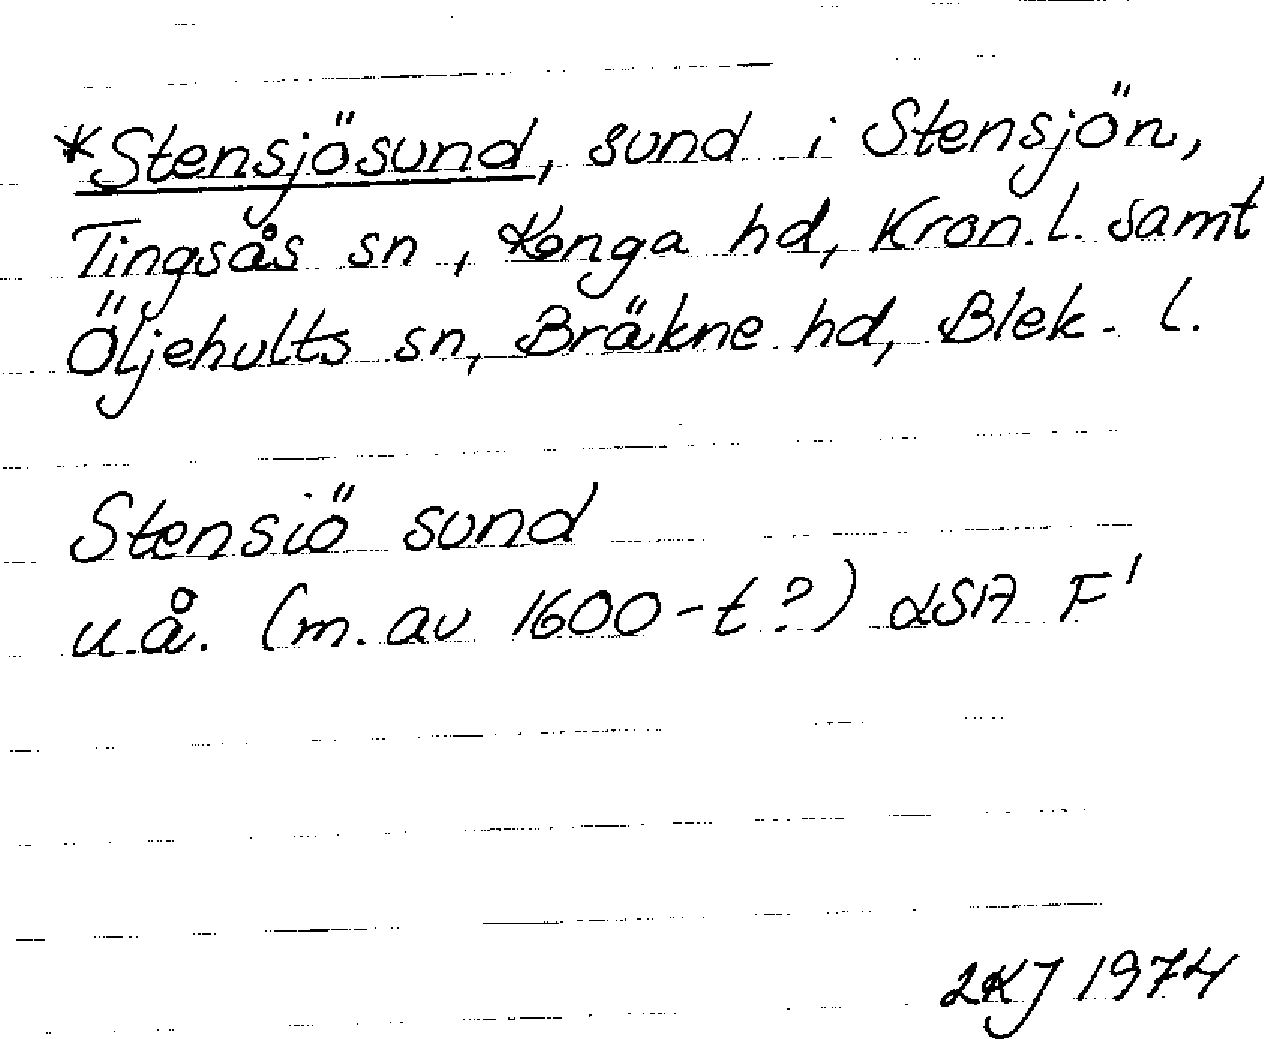 *Stensjösund, sund i Stensjön,
Tingsås sn, Konga hd, Kron. l. samt
Öljehults sn, Bräkne hd, Blek. l.
Stensiö sund
u.å. (m. av 1600-t?) LSA F¹
LKJ 1974